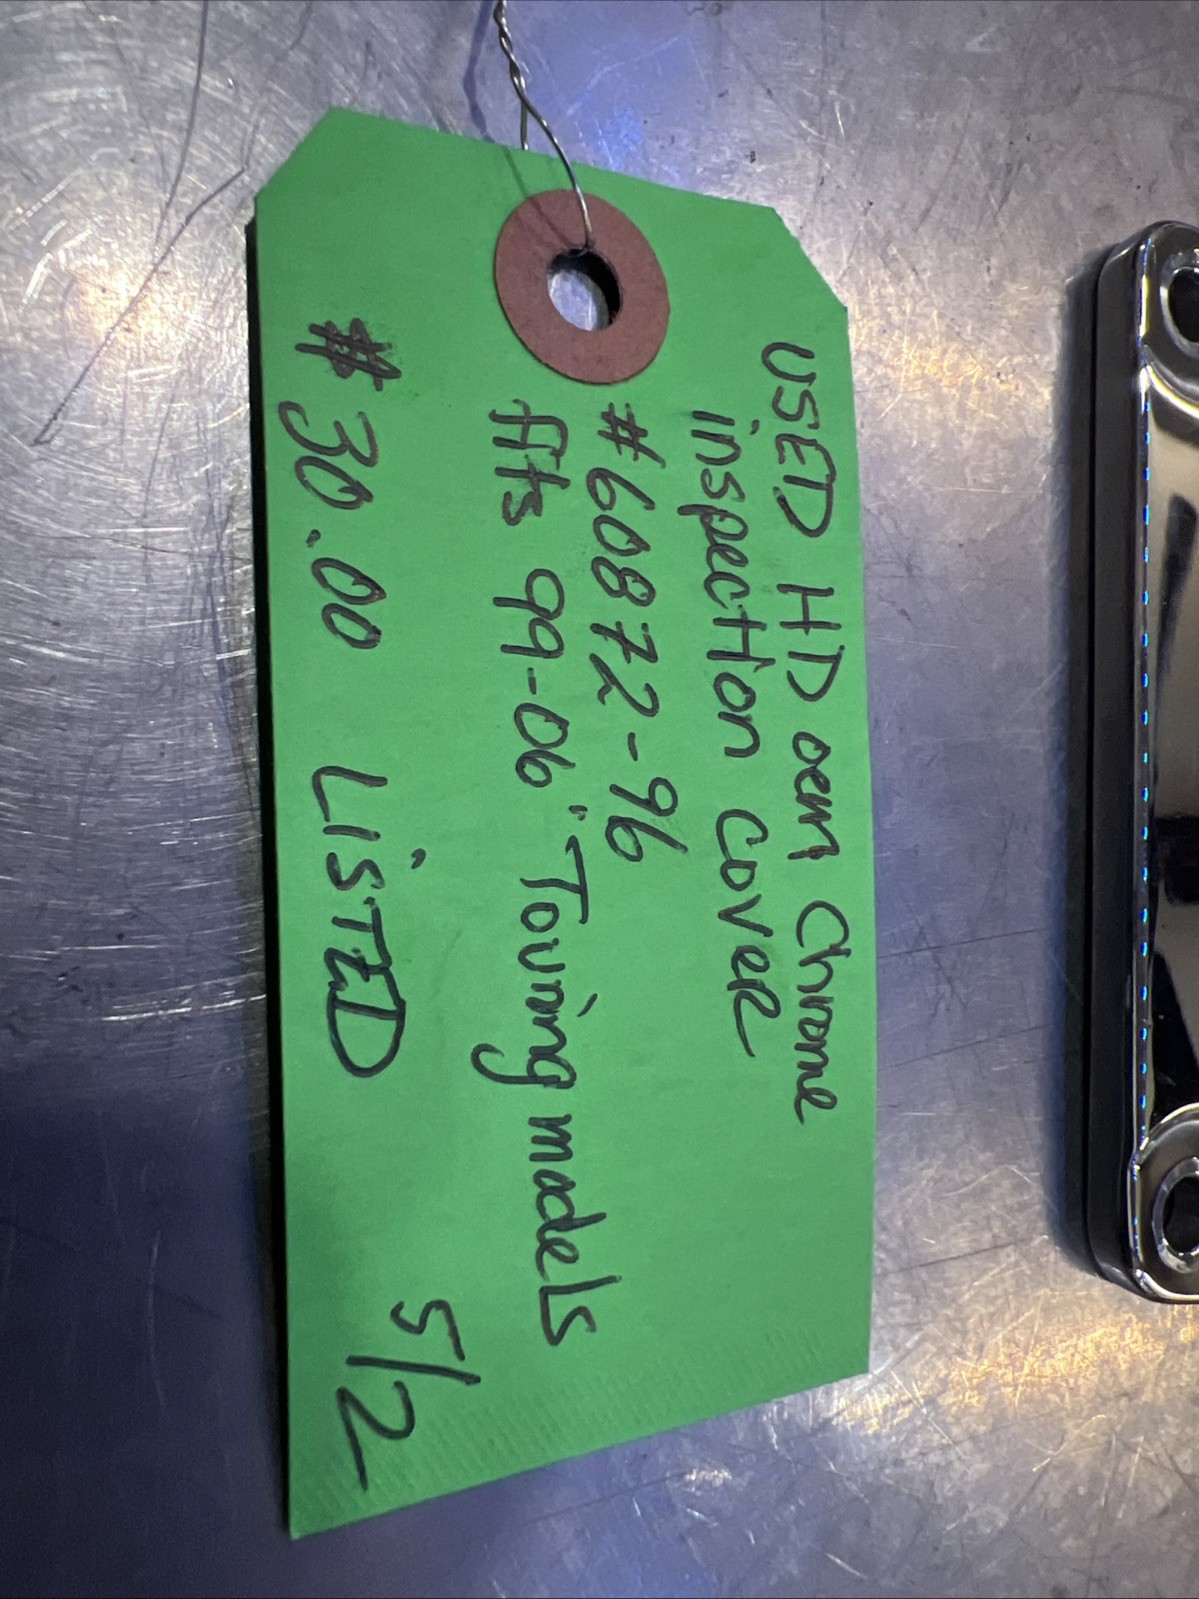 USED HD oem Chrome
inspection COVER
#60872-96
fits 99-06' Touring models
#30.00 LISTED 5/2